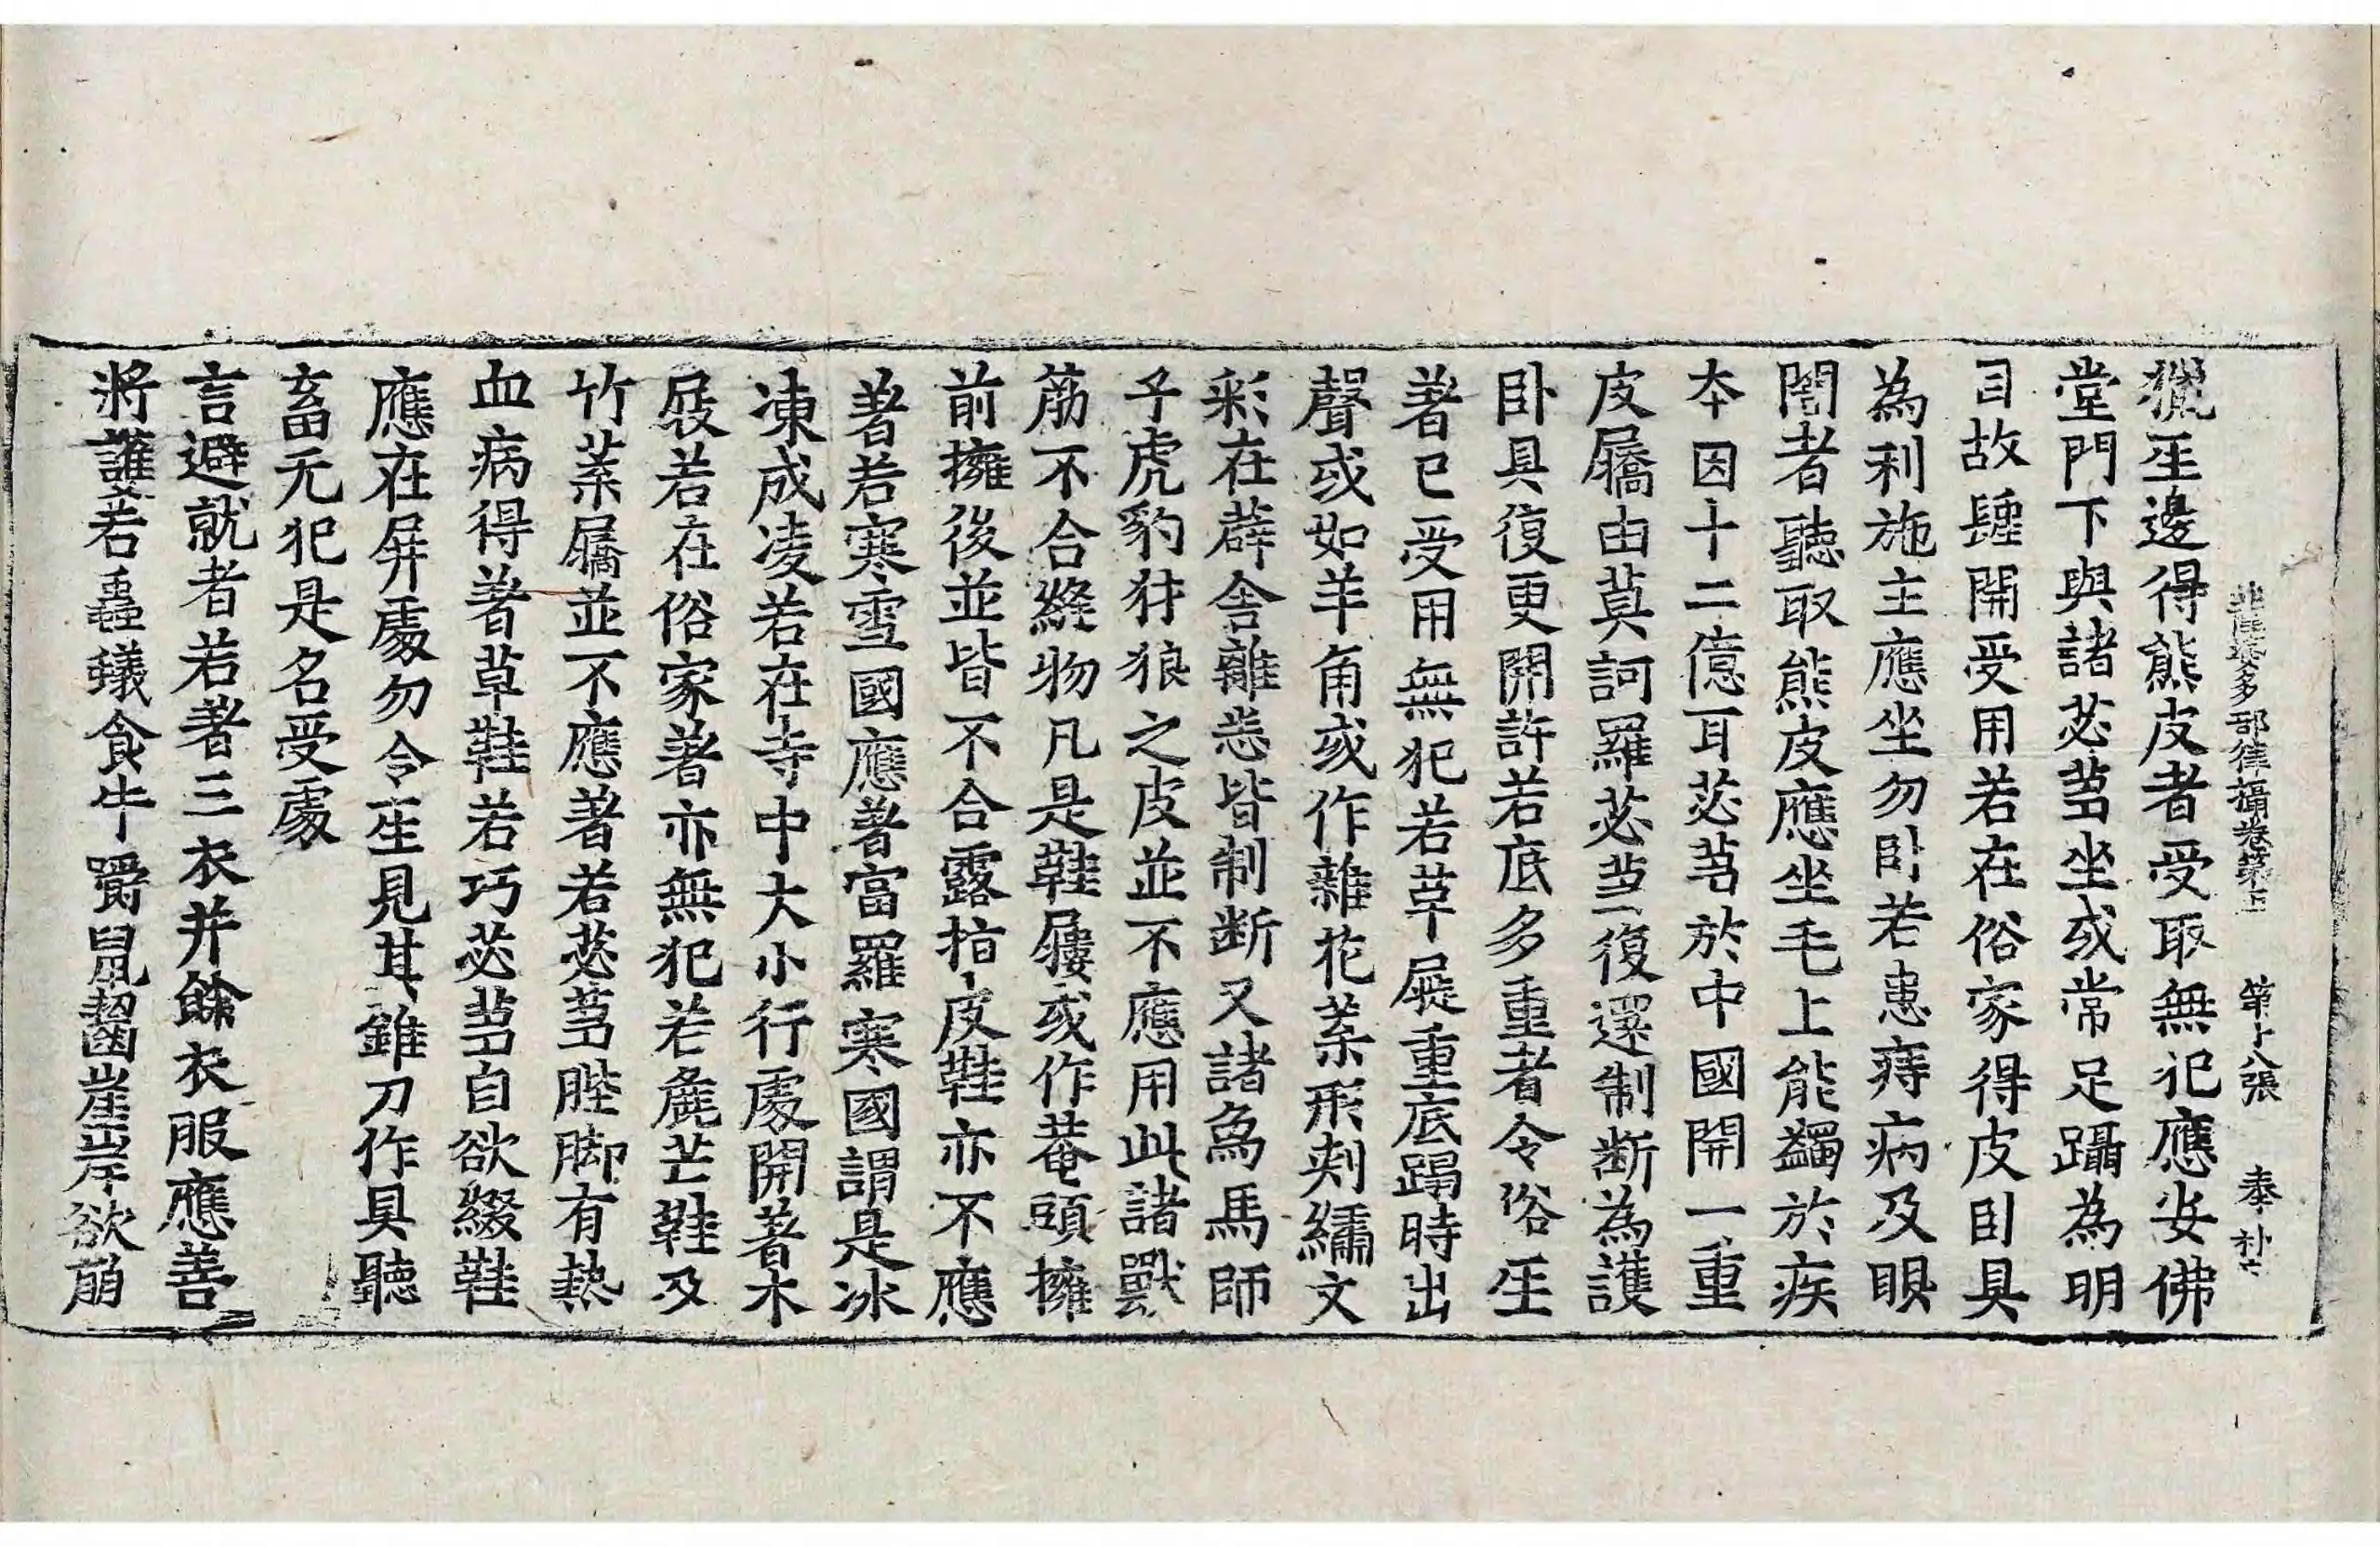 根薩婆多部律攝卷第五 第十八張 奉 補
獵𤯔邊得熊皮者受取無犯應安佛
堂門下與諸苾芻坐或常足躡為明
目故髄開受用若在俗家得皮卧具
為利施主應坐勿卧若患痔病及眼
闇者聽取熊皮應坐毛上能蠲於疾
本因十二億耳苾芻於中國開一重
皮屩由莫訶羅苾芻復還制斷為護
卧具復更開許若底多重者令俗𤯔
著已受用無犯若草屣重底蹋時出
聲或如羊角或作雜花葉形刺繡文
彩在薜舍離悉皆制断又諸為馬師
子虎豹犲狼之皮並不應用此諸獸
筋不合縫物凡是鞋屨或作菴頭擁
前擁後並皆不合露指皮鞋亦不應
著若寒雪國應著富羅寒國謂是冰
凍成凌若在寺中大小行處開著木
屐若在俗家著亦無犯若麁芒鞋及
竹葉屩並不應著若苾芻脞脚有熱
血病得著草鞋若巧苾芻自欲綴鞋
應在屏處勿令𤯔見其錐刀作具聽
畜无犯是名受處
言避就者若著三衣并餘衣服應善
將護若蟲蟻食牛嚼鼠齧崖岸欲崩